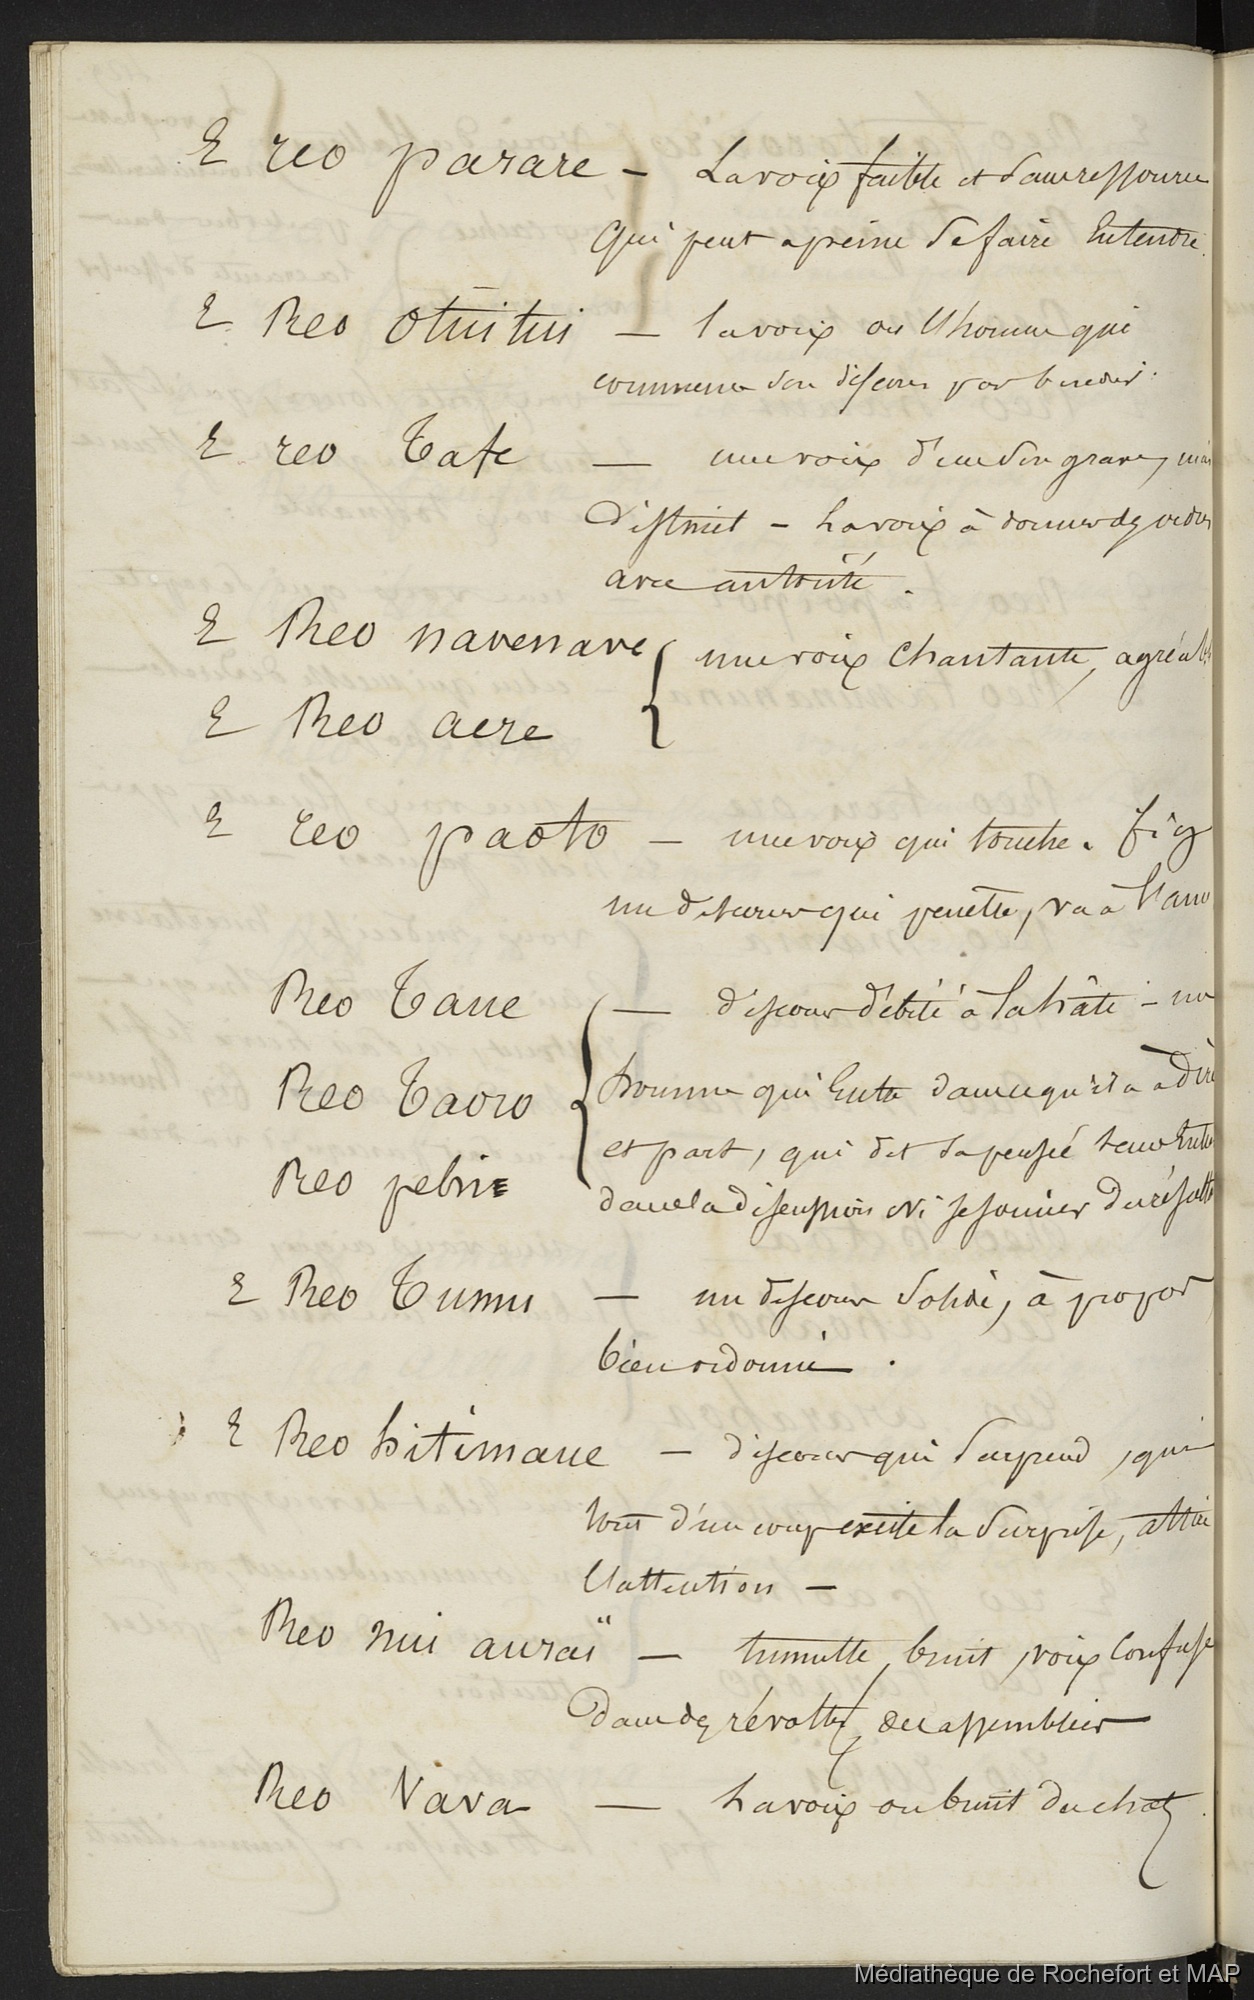 E reo parare — La voix faible et sans ressource
qui peut a peine se faire Entendre.
E Reo otuitui — la voix ou l'homme qui
commence son discours par
E reo Tafe — une voix d'un son grave, mais
distinct — la voix à donner des ordres
avec autorité.
E Reo navenave une voix chantante, agréable
E Reo aere
E reo paoto — une voix qui touche. fig
un discours qui penetre, va à l'ame
Reo Tane — discours débité à la hâte — un
Reo Taoro homme qui Entre dans ce qu'il a à dire
et part, qui dit sa pensée sans Entrer
Reo
dans la discussion Ni se soucier du résultat
E Reo Tumu — un discours solide, à propos
bien ordonné.
E Reo hitimaue — discours qui surprend, qui
tout d'un coup excite la surprise, attire
L'attention —
Reo nui auraï — tumulte, bruit, voix confuse
dans des révoltes, des assemblées —
Reo Vava — La voix ou bruit du chat
Médiathèque de Rochefort et MAP